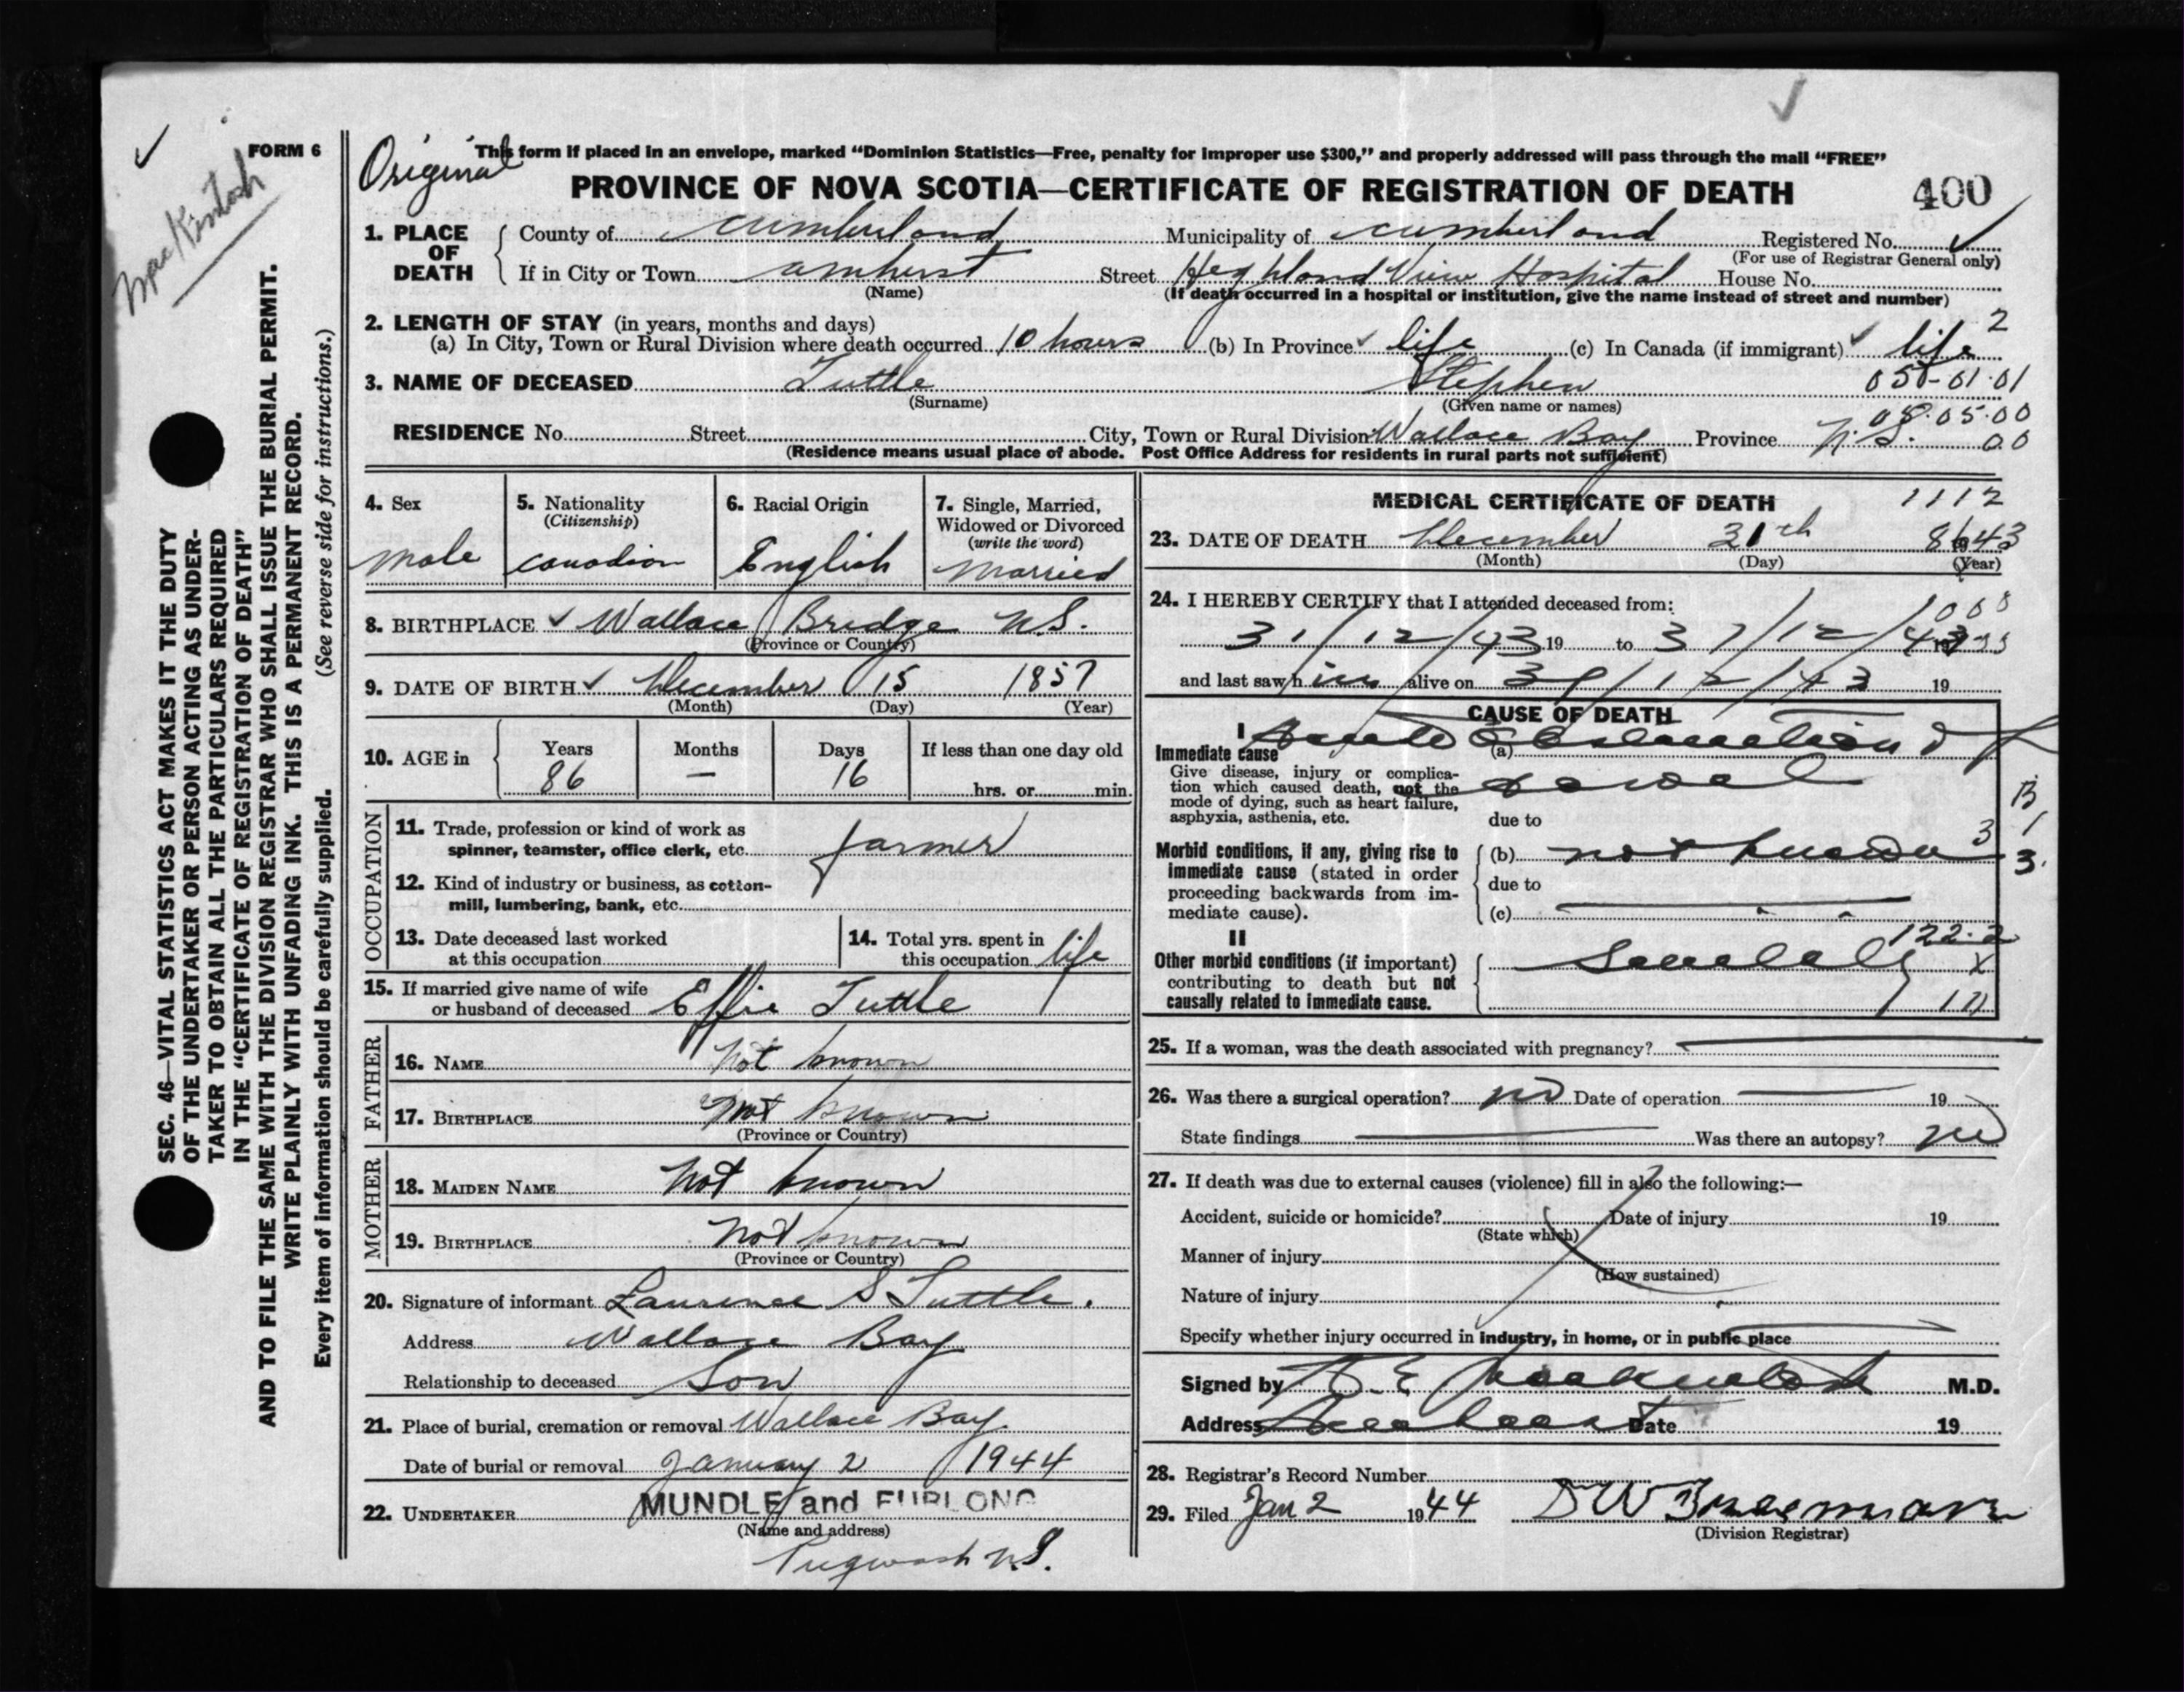 FORM 6
MacKintosh
Original
This form if placed in an envelope, marked “Dominion Statistics—Free, penalty for improper use $300,” and properly addressed will pass through the mail “FREE”
PROVINCE OF NOVA SCOTIA—CERTIFICATE OF REGISTRATION OF DEATH 400
1. PLACE OF DEATH County of Cumberland Municipality of Cumberland Registered No.
(For use of Registrar General only)
If in City or Town Amherst Street Highland View Hospital House No.
(Name) (If death occurred in a hospital or institution, give the name instead of street and number)
2. LENGTH OF STAY (in years, months and days) 2
(a) In City, Town or Rural Division where death occurred 10 hours (b) In Province life (c) In Canada (if immigrant) life
3. NAME OF DECEASED Tuttle Stephen
(Surname) (Given name or names)
08.05.00
RESIDENCE No. Street City, Town or Rural Division Wallace Bay Province N.S. 00
(Residence means usual place of abode. Post Office Address for residents in rural parts not sufficient)
4. Sex 5. Nationality (Citizenship) 6. Racial Origin 7. Single, Married, Widowed or Divorced (write the word)
Male Canadian English Married
8. BIRTHPLACE Wallace Bridge N.S.
(Province or Country)
9. DATE OF BIRTH December 15 1857
(Month) (Day) (Year)
10. AGE in Years Months Days If less than one day old
86 — 16 hrs. or min.
OCCUPATION
11. Trade, profession or kind of work as
spinner, teamster, office clerk, etc. farmer
12. Kind of industry or business, as cotton-
mill, lumbering, bank, etc.
13. Date deceased last worked
at this occupation
14. Total yrs. spent in
this occupation life
15. If married give name of wife
or husband of deceased Effie Tuttle
FATHER
16. NAME Not known
17. BIRTHPLACE Not known
(Province or Country)
MOTHER
18. MAIDEN NAME Not known
19. BIRTHPLACE Not known
(Province or Country)
20. Signature of informant Laurence S Tuttle.
Address Wallace Bay
Relationship to deceased Son
21. Place of burial, cremation or removal Wallace Bay
Date of burial or removal January 2 1944
22. UNDERTAKER MUNDLE and FURLONG
(Name and address)
Pugwash N.S.
MEDICAL CERTIFICATE OF DEATH 1112
23. DATE OF DEATH December 31th 1943
(Month) (Day) (Year)
24. I HEREBY CERTIFY that I attended deceased from:
31/12/43 19 to 31/12/43
and last saw him alive on 31/12/43 19
CAUSE OF DEATH
I
Immediate cause (a) Acute Obstruction of
bowel
Give disease, injury or complica-
tion which caused death, not the
mode of dying, such as heart failure,
asphyxia, asthenia, etc.
due to
Morbid conditions, if any, giving rise to
immediate cause (stated in order
proceeding backwards from im-
mediate cause).
(b) not known
due to
(c)
II
Other morbid conditions (if important)
contributing to death but not
causally related to immediate cause.
Senility
122.2
25. If a woman, was the death associated with pregnancy?
26. Was there a surgical operation? no Date of operation 19
State findings Was there an autopsy? no
27. If death was due to external causes (violence) fill in also the following:—
Accident, suicide or homicide? Date of injury 19
(State which)
Manner of injury
(How sustained)
Nature of injury
Specify whether injury occurred in industry, in home, or in public place
Signed by MacKintosh M.D.
Address Amherst Date 19
28. Registrar's Record Number
29. Filed Jan 2 1944
(Division Registrar)
SEC. 46—VITAL STATISTICS ACT MAKES IT THE DUTY
OF THE UNDERTAKER OR PERSON ACTING AS UNDER-
TAKER TO OBTAIN ALL THE PARTICULARS REQUIRED
IN THE “CERTIFICATE OF REGISTRATION OF DEATH”
AND TO FILE THE SAME WITH THE DIVISION REGISTRAR WHO SHALL ISSUE THE BURIAL PERMIT.
WRITE PLAINLY WITH UNFADING INK. THIS IS A PERMANENT RECORD.
Every item of information should be carefully supplied. (See reverse side for instructions.)